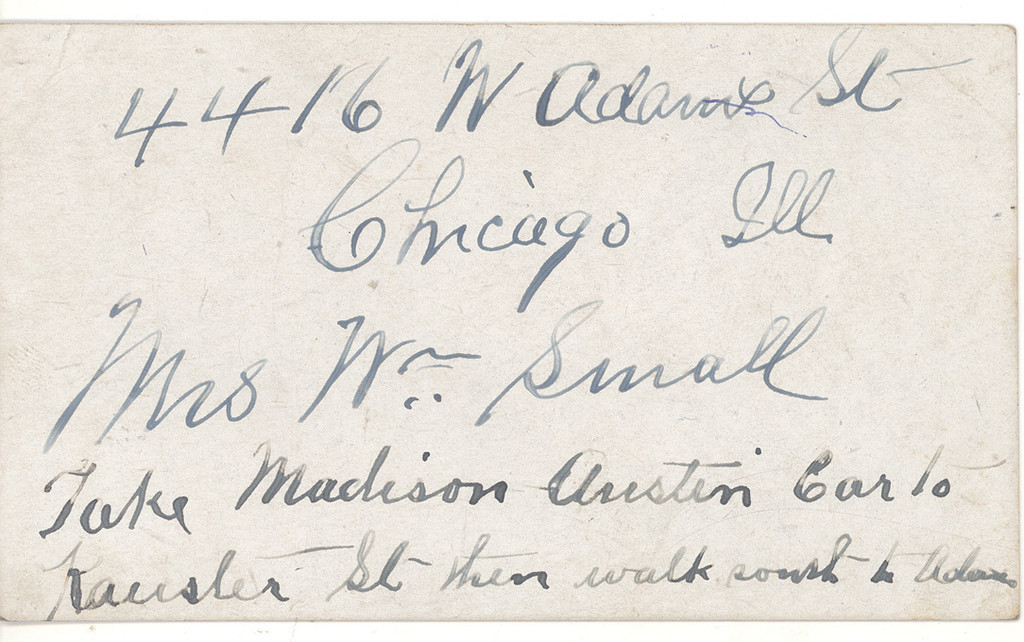 4416 W Adams St
Chicago Ill
Mrs Wm Small
Take Madison Austin Car to
St then walk south to Adams